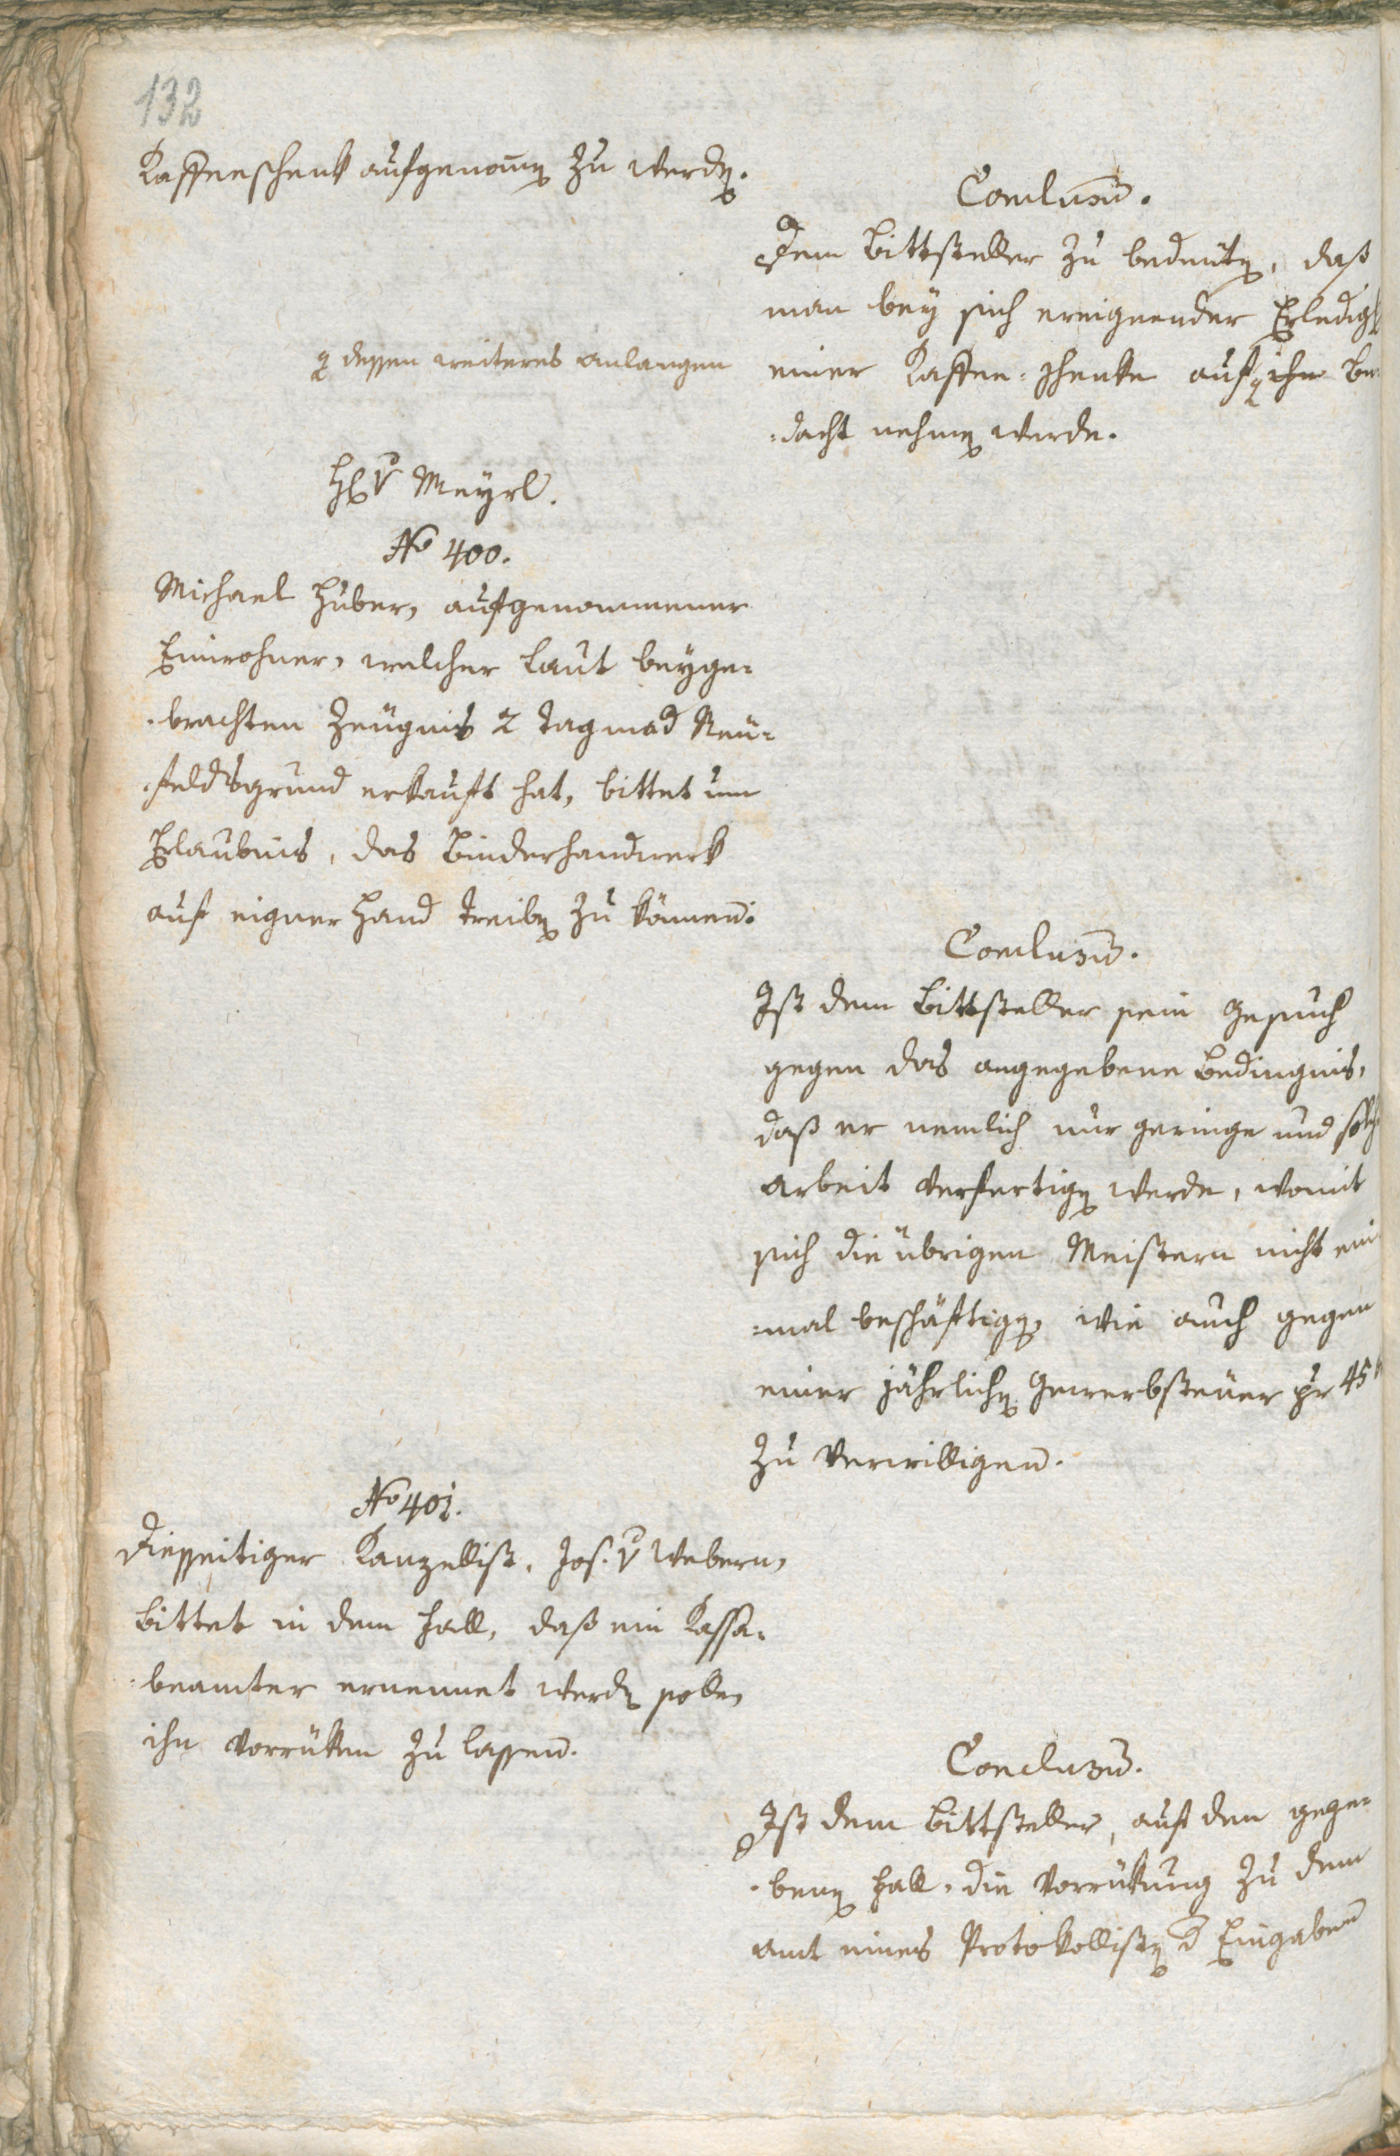 132
Kaffeeschenk aufgenomen zu werden.
Conclusum.
Dem Bittsteller zu bedeuten, daß
man bey sich ereignender Erledigg
einer Kaffee-Schenke auf ihn Be-
=dacht nehmen werde.
dessen weiteres Anlangen
H v Meyrl.
No 400.
Michael Huber, aufgenommener
Einwohner, welcher laut beyge-
-brachten Zeugnis 2 Tagmad Neu-
-feldsgrund erkauft hat, bittet um
Erlaubnis, das Binderhandwerk
auf eigner Hand treiben zu können.
Conclusum.
Ist dem Bittsteller sein Gesuch
gegen das angegebene Bedingnis,
daß er nemlich nur geringe und solche
Arbeit verfertigen werde, womit
sich die übrigen Meistern nicht ein
=mal beschäftigen, wie auch gegen
einer jährlichen Gewerbsteuer pr 45
zu verwilligen.
No 401.
Diesseitiger Kanzellist, Jos. v Webern,
bittet in dem Fall, daß ein Kassa-
-beamter ernennet werden solle,
ihn vorrüken zu lassen.
Conclusum.
Ist dem Bittsteller, auf den gege-
-benen Fall, die Vorrükung zu dem
Amt eines Protokollisten d Eingaben